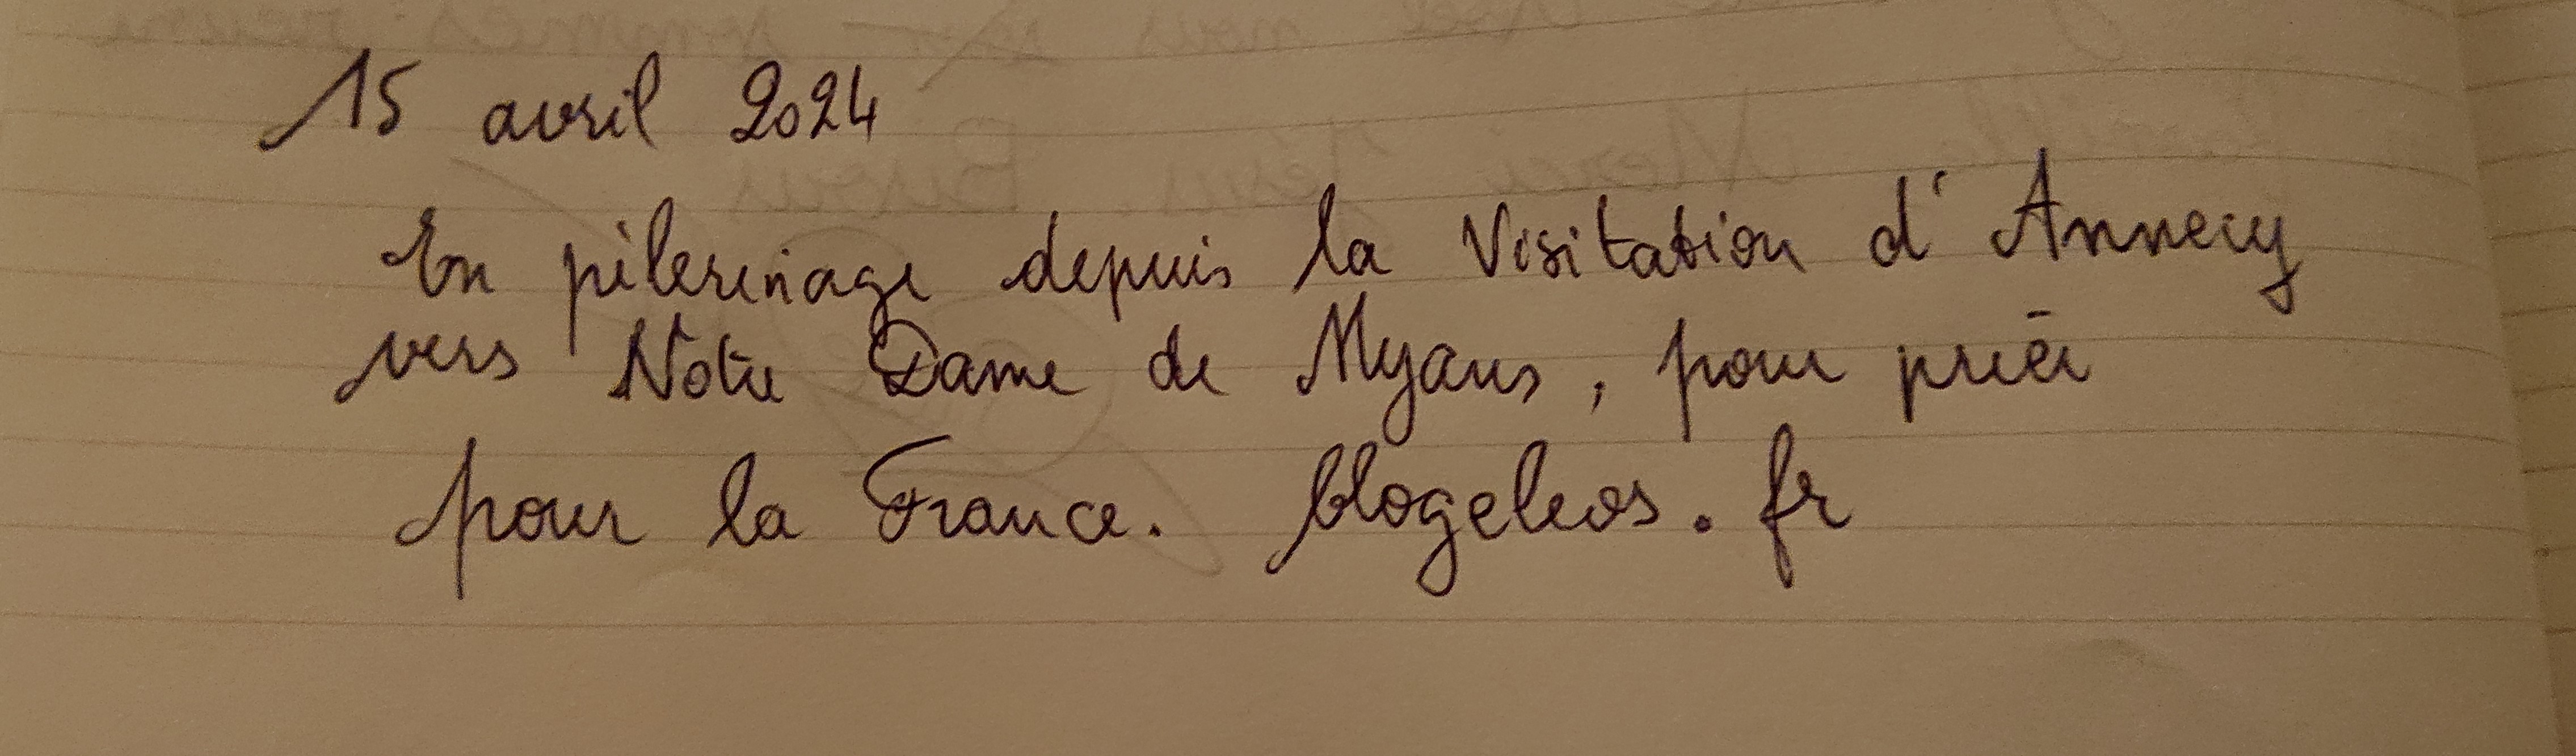 15 avril 2024
En pèlerinage depuis la Visitation d'Annecy
vers Notre Dame de Myans, pour prier
pour la France. blogeleos.fr